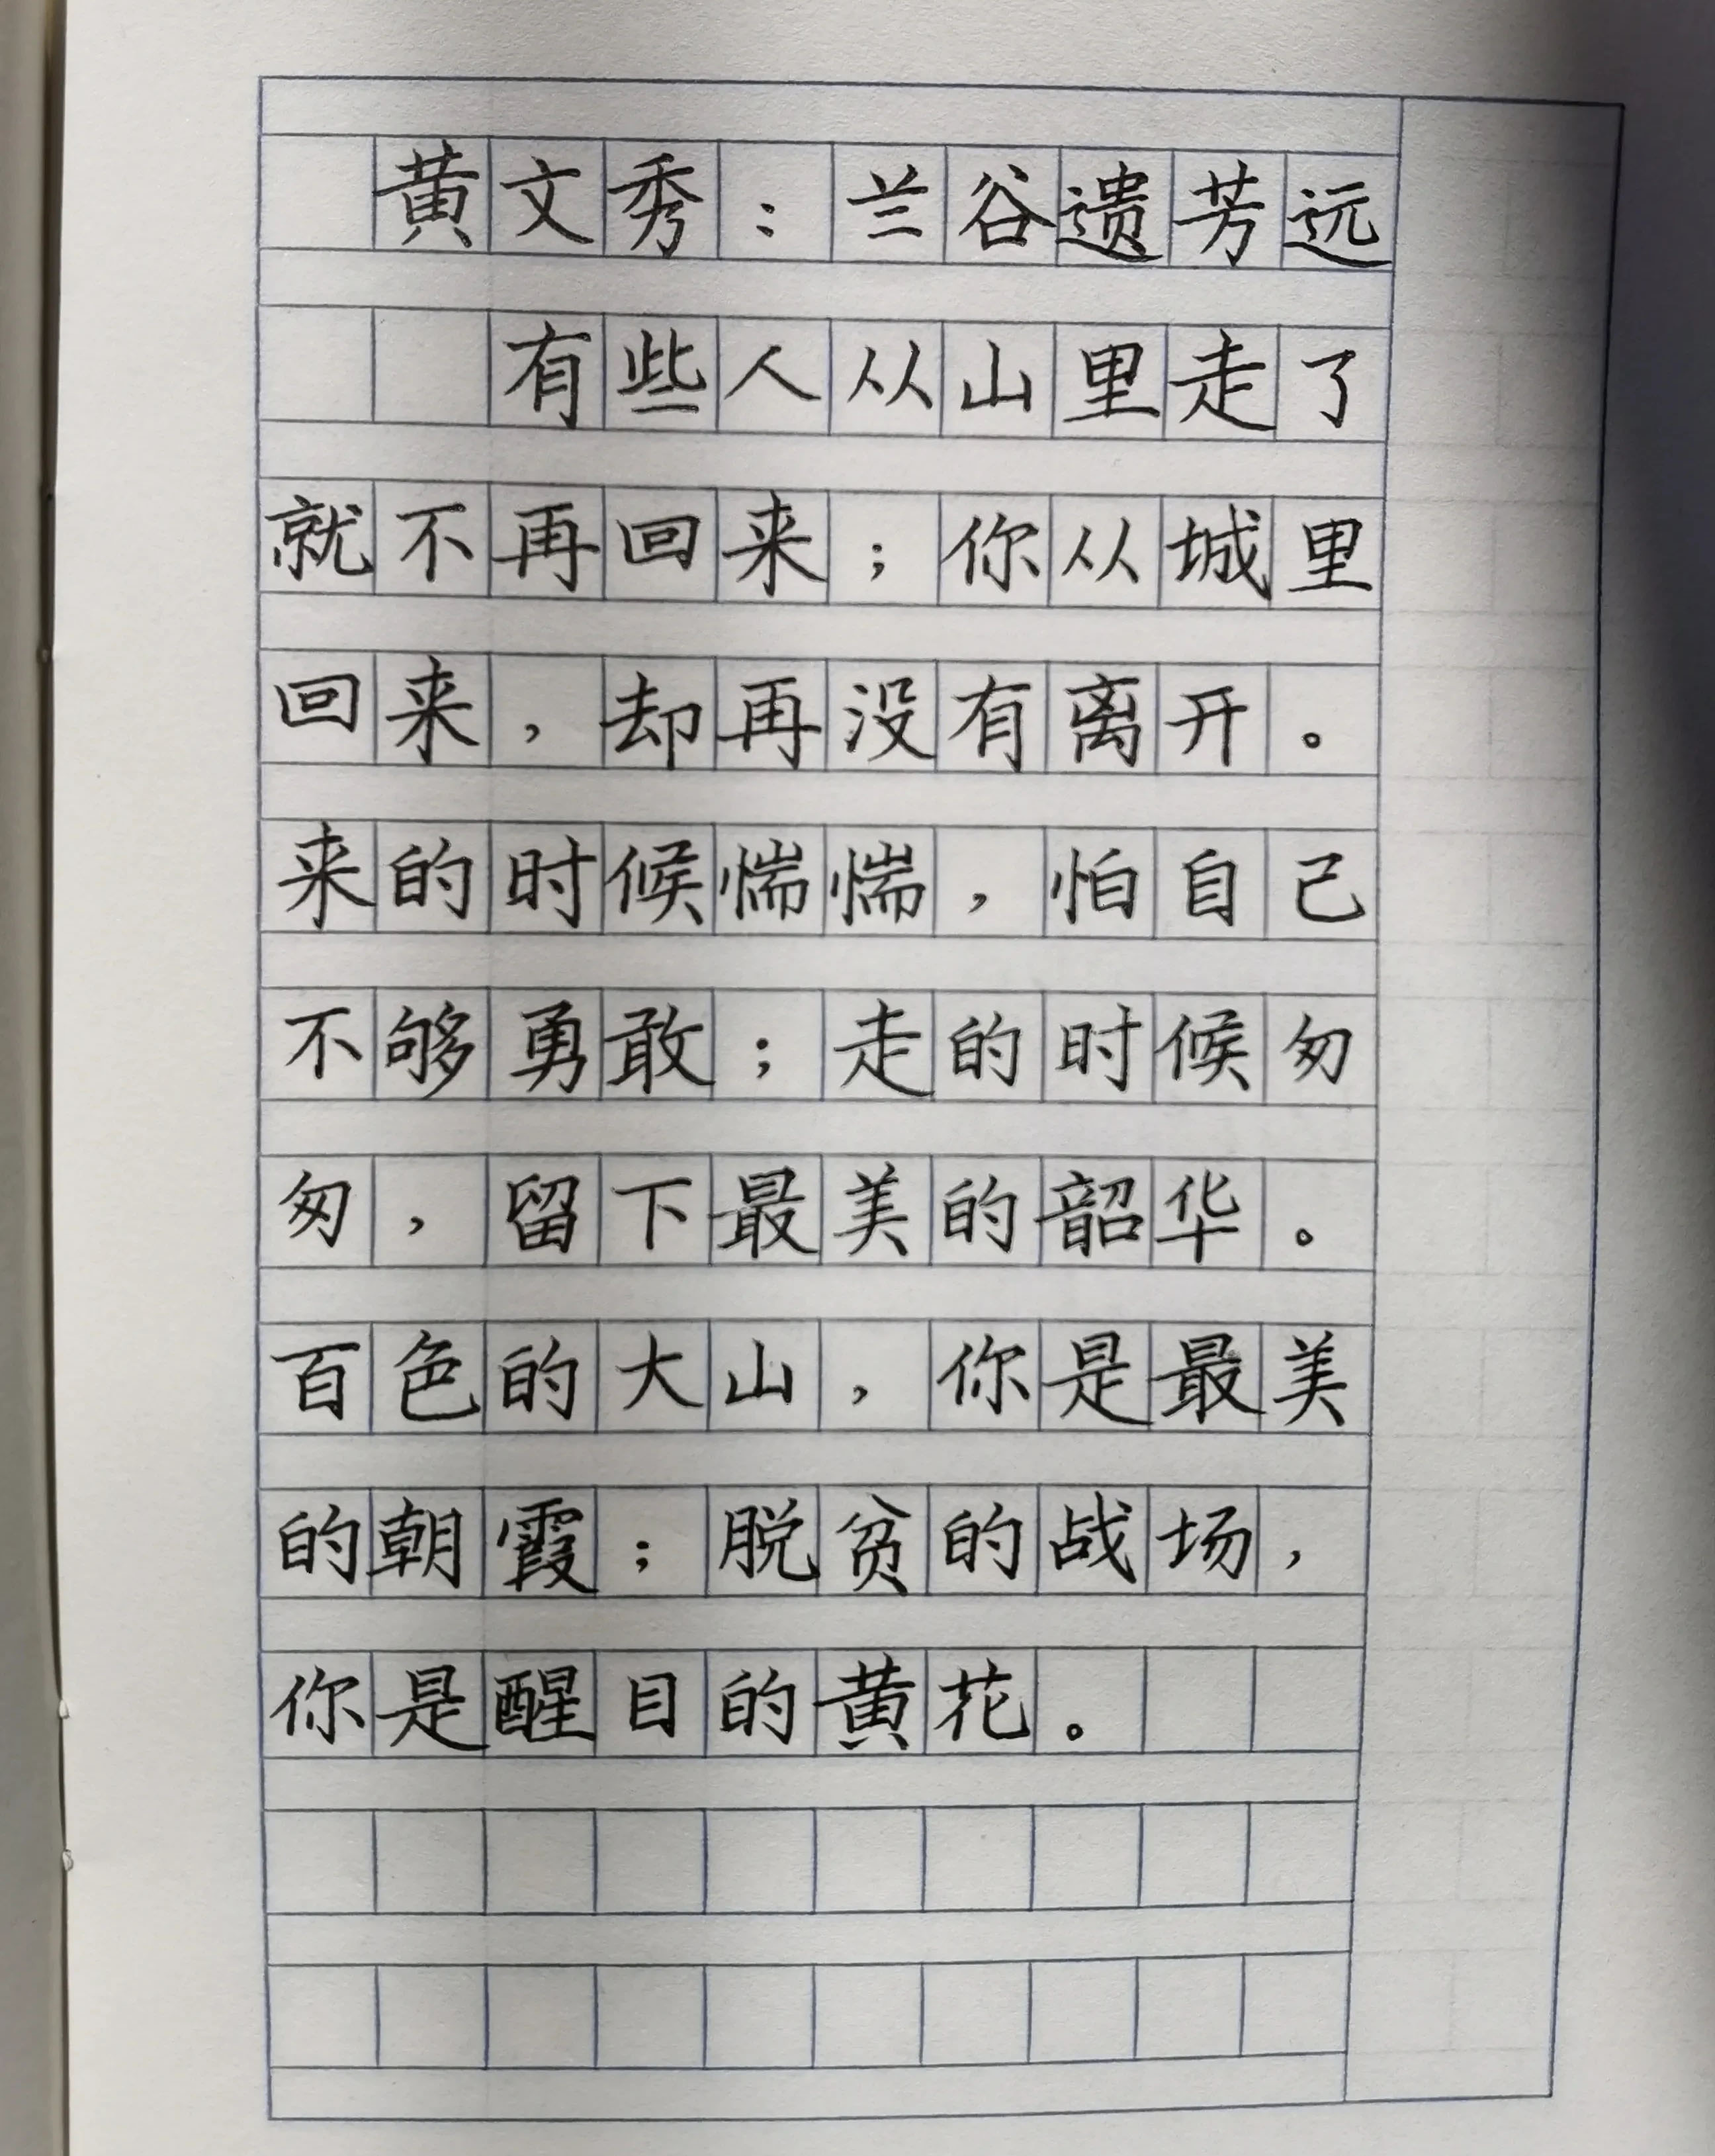 黄文秀：兰谷遗芳远
有些人从山里走了
就不再回来；你从城里
回来，却再没有离开。
来的时候惴惴，怕自己
不够勇敢；走的时候匆
匆，留下最美的韶华。
百色的大山，你是最美
的朝霞；脱贫的战场，
你是醒目的黄花。